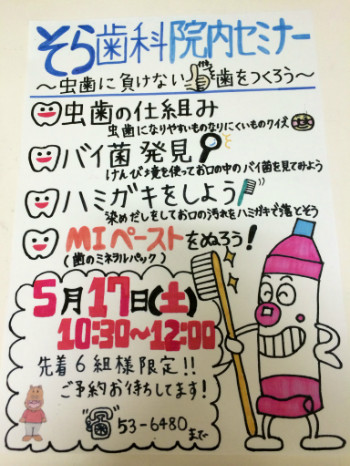 そら歯科院内セミナー
～虫歯に負けない歯をつくろう～
虫歯の仕組み
虫歯になりやすいものなりにくいものクイズ
バイ菌発見
けんび境を使ってお口の中のバイ菌を見てみよう
ハミガキをしよう
染めだしをしてお口の汚れをハミガキで落とそう
MIペーストをぬろう!
(歯のミネラルパック)
5月17日(土)
10:30～12:00
先着6組様限定!!
ご予約お待ちしてます!
53-6480まで